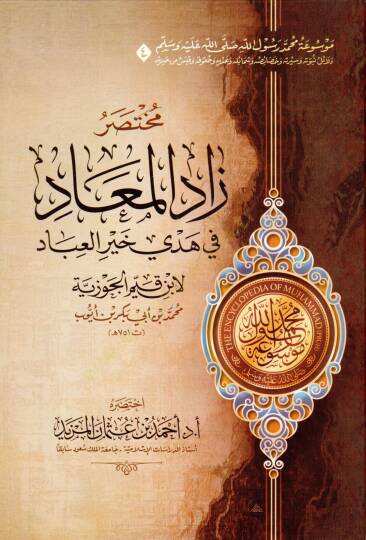 مَوْسُوعَةُ مُحَمَّدٍ رَسُولِ اللهِ صَلَّى اللهُ عَلَيْهِ وَسَلَّمَ
دلائل نبوته وسيرته وخصائصه وشمائله وهديه وحقوقه وقبس من خبريه
٤
مُخْتَصَرُ
زَادِ المَعَادِ
فِي هَدْيِ خَيْرِ العِبَادِ
لابْنِ قَيِّمِ الجَوْزِيَّةِ
مُحَمَّدِ بْنِ أَبِي بَكْرِ بْنِ أَيُّوبَ
(ت ٧٥١هـ)
THE ENCYCLOPEDIA OF MUHAMMAD PBUH
موسوعة محمد رسول الله
صلى الله عليه وسلم
اخْتَصَرَهُ
أ.د أَحْمَدُ بْنُ عُثْمَانَ المَزْيَد
أستاذ الدراسات الإسلامية - جامعة الملك سعود سابقا